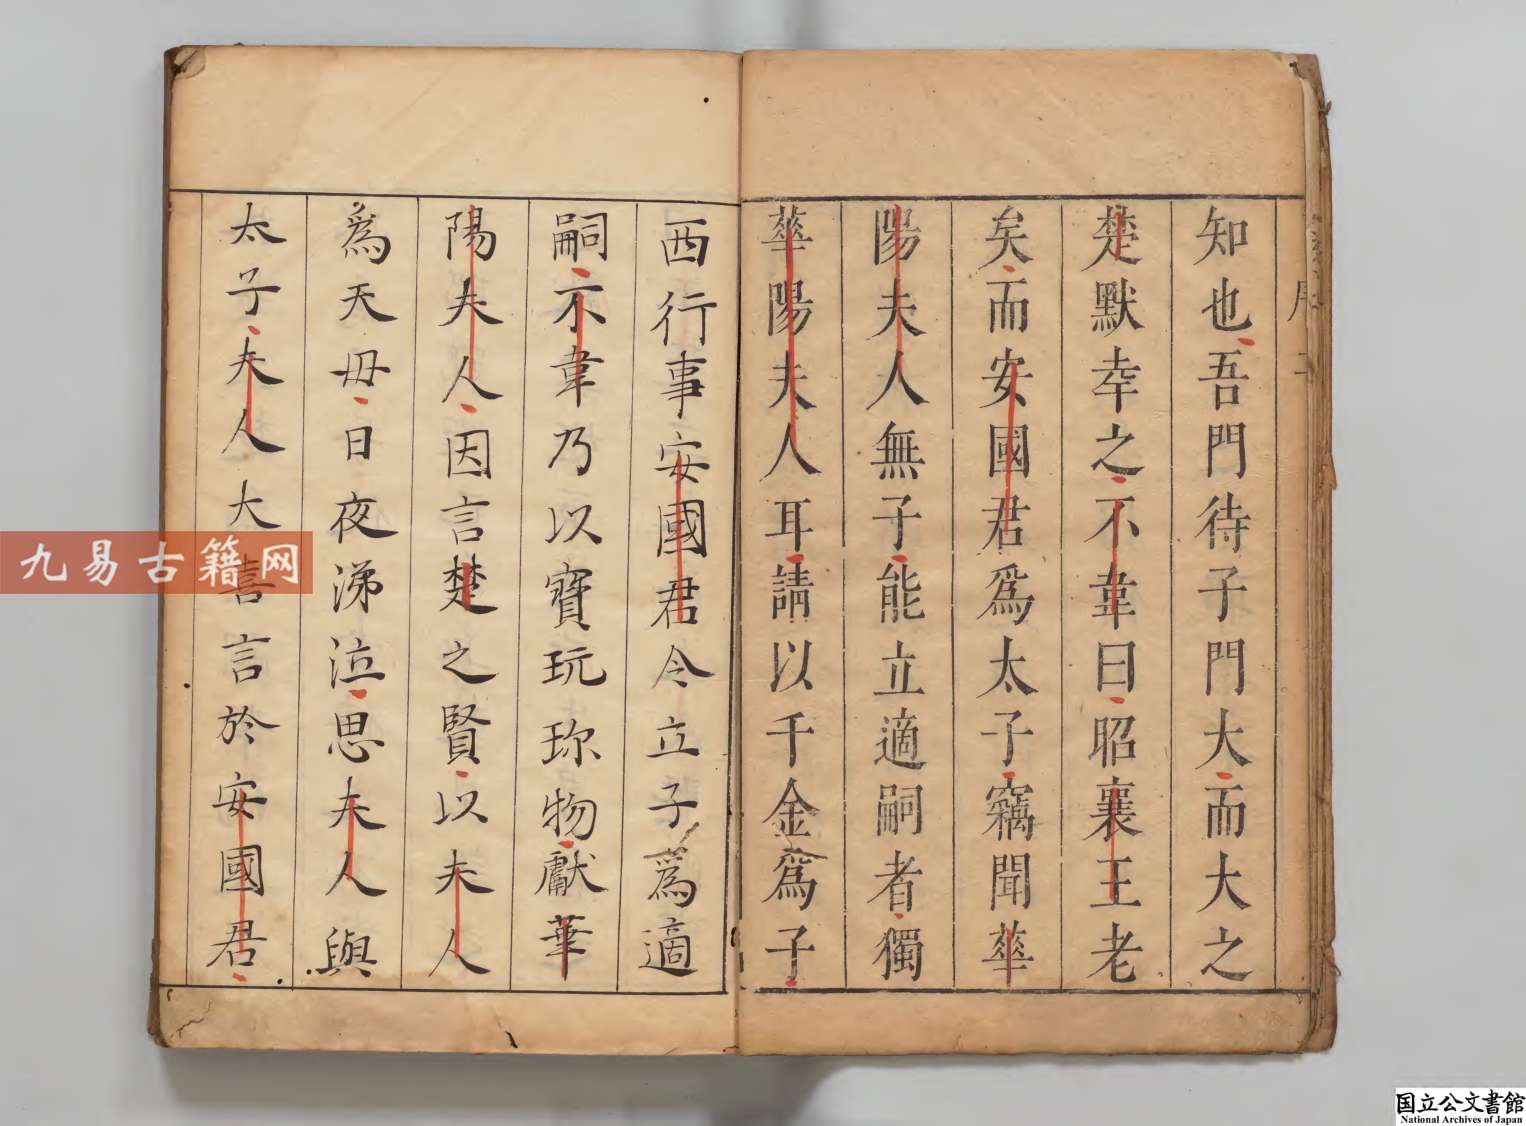 知也吾門待子門大而大之
楚默幸之不韋曰昭襄王老
矣而安國君爲太子竊聞華
陽夫人無子能立適嗣者獨
華陽夫人耳請以千金爲子
西行事安國君令立子爲適
嗣不韋乃以寶玩珎物獻華
陽夫人因言楚之賢以夫人
爲天母日夜涕泣思夫人與
太子夫人大喜言於安國君
九易古籍网
国立公文書館
National Archives of Japan